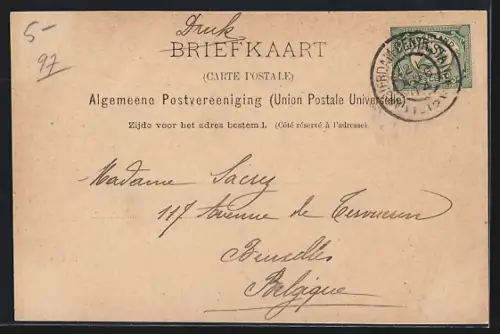 5-
97
Druk
BRIEFKAART
(CARTE POSTALE)
Algemeene Postvereeniging (Union Postale Universelle)
Zijde voor het adres bestemd. (Côté réservé à l'adresse).
Madame Sacrez
117 Avenue de Tervueren
Bruxelles
Belgique